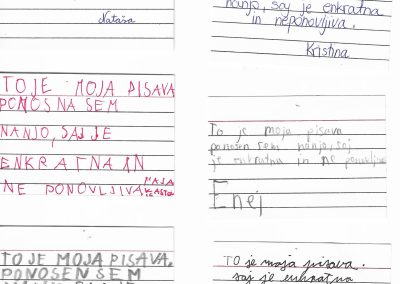 Nataša
nanjo, saj je enkratna
in neponovljiva.
Kristina
TO JE MOJA PISAVA
PONOSNA SEM
NANJO, SAJ JE
ENKRATNA IN
NE PONOVLJIVA MAJA
To je moja pisava
ponosen sem nanjo, saj
je enkratna in ne ponovljiva
Enej
TO JE MOJA PISAVA.
PONOSEN SEM
TO je moja pisava.
saj je enkratna